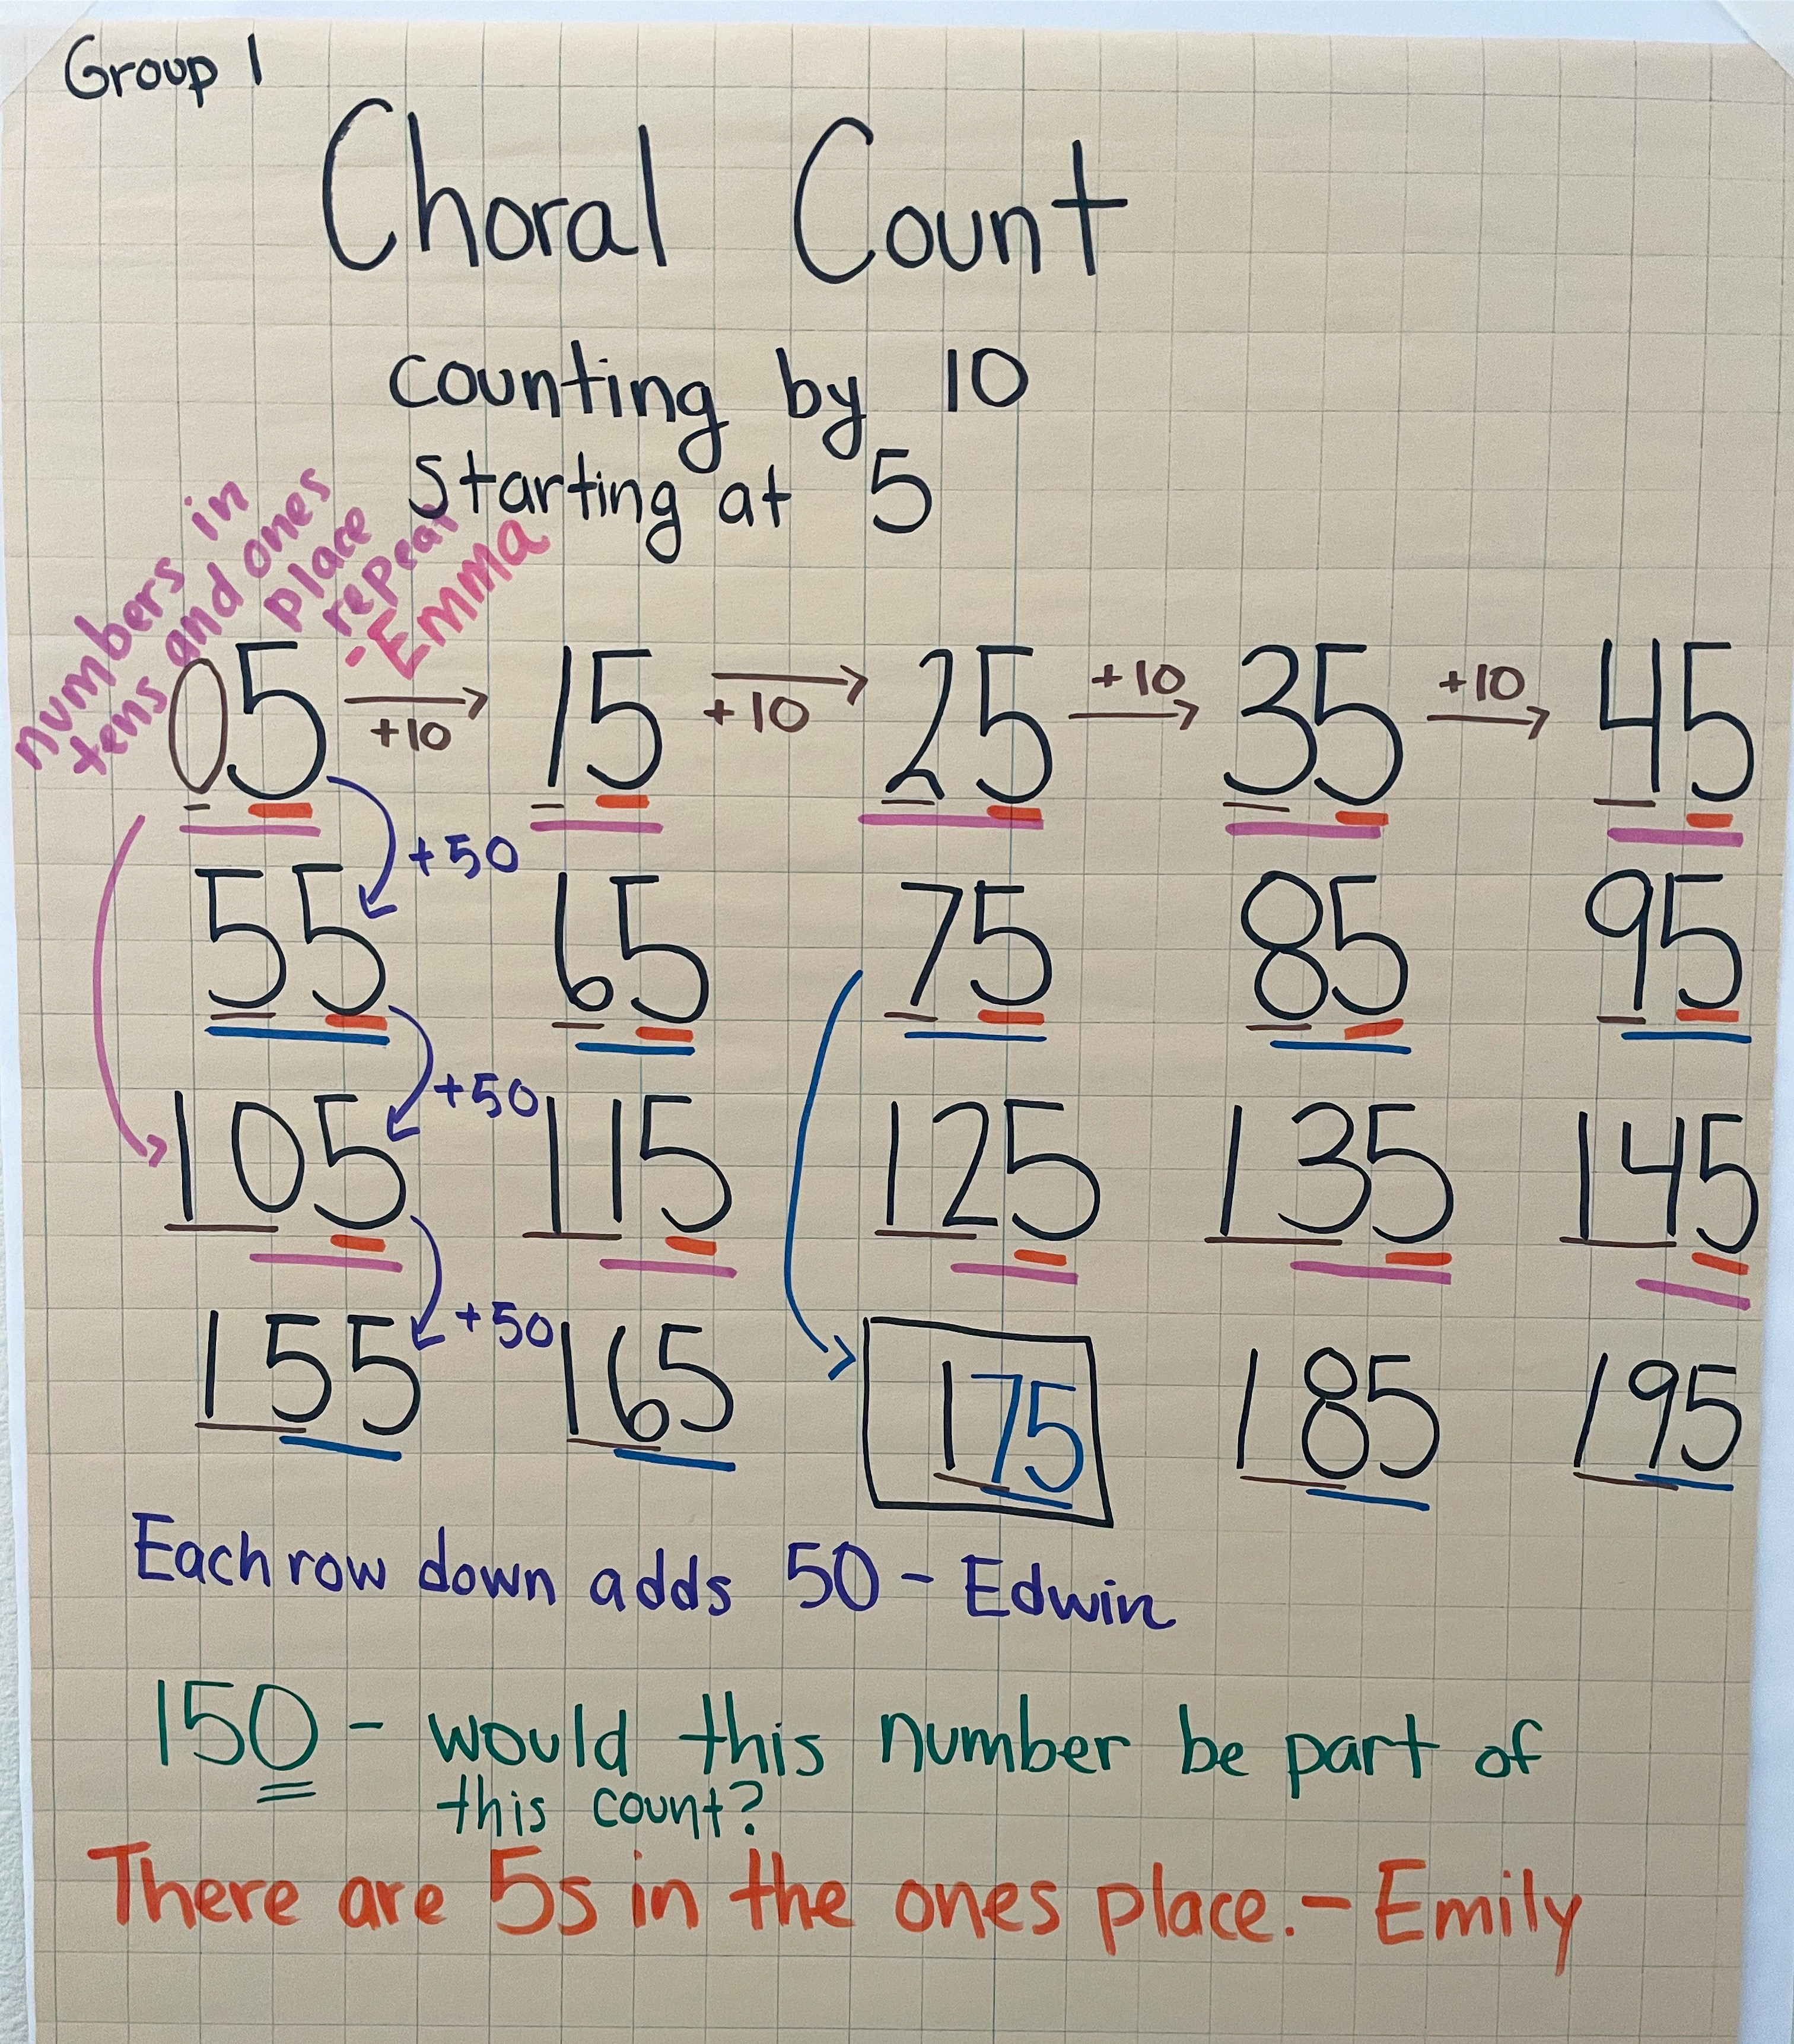 Group 1
Choral Count
counting by 10
starting at 5
numbers in
tens and ones
place
repeat
- Emma
05 +10 15 +10 25 +10 35 +10 45
+50
55 65 75 85 95
+50
105 115 125 135 145
+50
155 165 175 185 195
Each row down adds 50 - Edwin
150 - would this number be part of
this count?
There are 5s in the ones place. - Emily